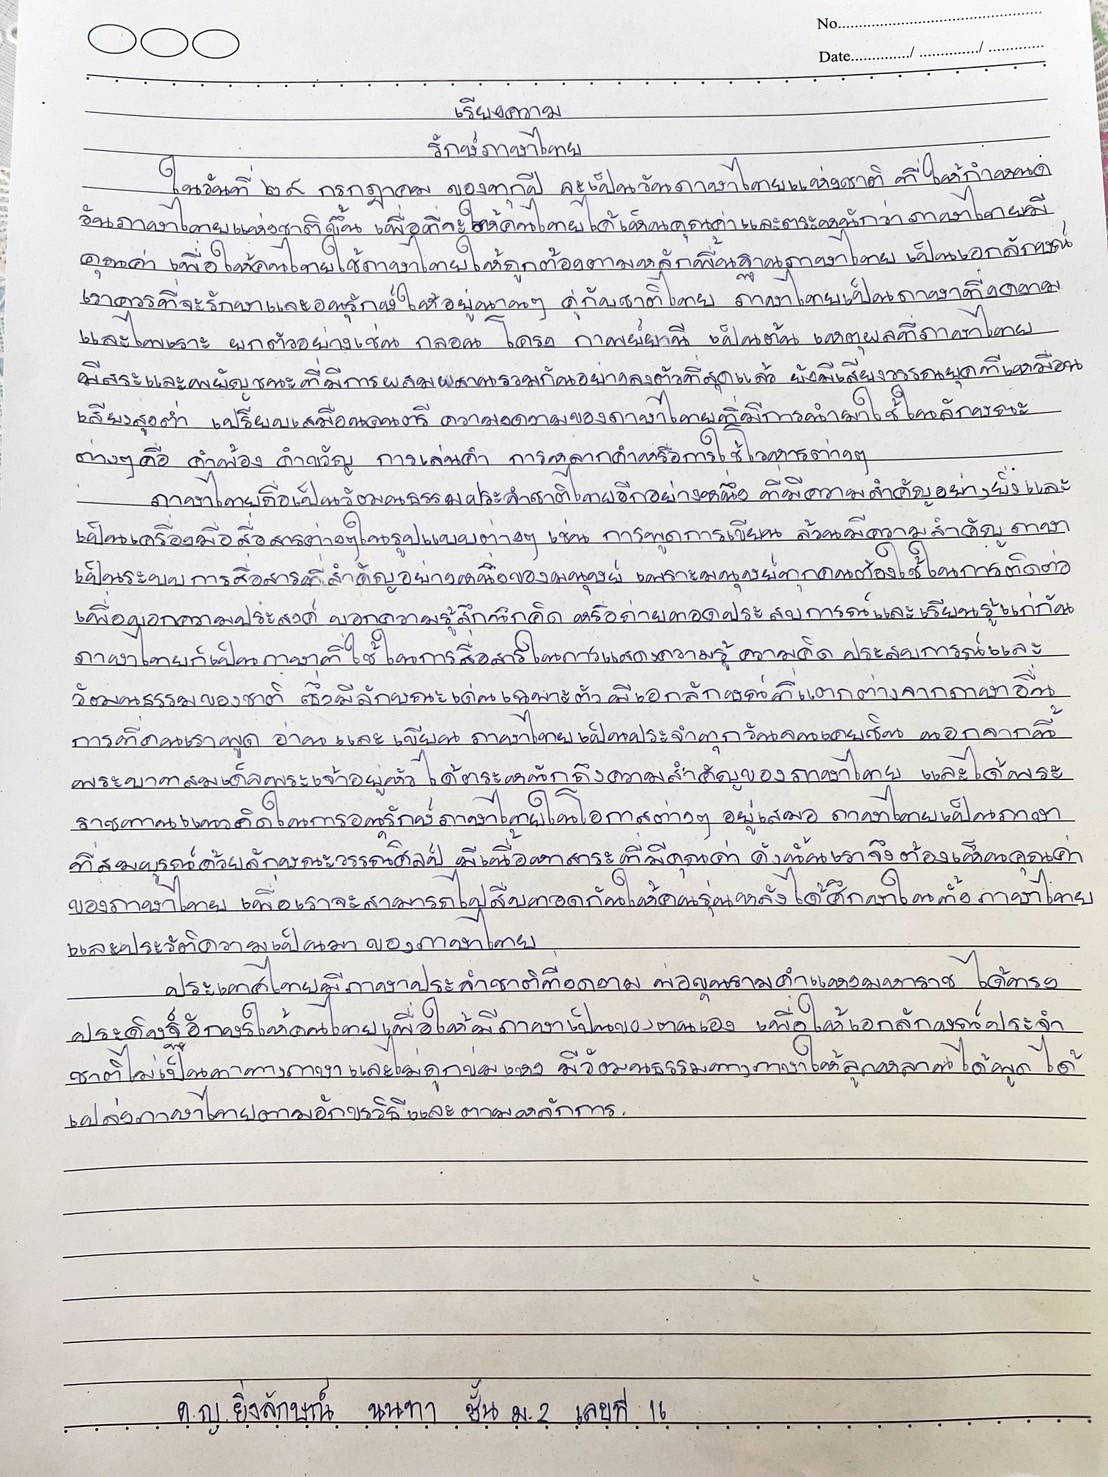 No.
Date / /
เรียงความ
รักษ์ภาษาไทย
ในวันที่ ๒๙ กรกฎาคม ของทุกปี จะเป็นวันภาษาไทยแห่งชาติ ที่ให้กำหนด
วันภาษาไทยแห่งชาติขึ้น เพื่อที่จะให้คนไทยได้เห็นคุณค่าและตระหนักว่าภาษาไทยมี
คุณค่า เพื่อให้คนไทยใช้ภาษาไทยให้ถูกต้องตามหลักพื้นฐานภาษาไทย เป็นเอกลักษณ์
เราควรที่จะรักษาและอนุรักษ์ให้อยู่นานๆ คู่กับชาติไทย ภาษาไทยเป็นภาษาที่งดงาม
และไพเราะ ยกตัวอย่างเช่น กลอน โคลง กาพย์ยานี เป็นต้น เหตุผลที่ภาษาไทย
มีสระและพยัญชนะที่มีการผสมผสานรวมกันอย่างลงตัวที่สุดแล้ว ยังมีเสียงวรรณยุกต์เหมือน
เสียงสูงต่ำ เปรียบเสมือนดนตรี ความงดงามของภาษาไทยที่มีการนำมาใช้ในลักษณะ
ต่างๆคือ คำพ้อง คำขวัญ การเล่นคำ การหลากคำหรือการใช้โวหารต่างๆ
ภาษาไทยถือเป็นวัฒนธรรมประจำชาติไทยอีกอย่างหนึ่ง ที่มีความสำคัญอย่างยิ่งและ
เป็นเครื่องมือสื่อสารต่างๆในรูปแบบต่างๆ เช่น การพูดการเขียน ล้วนมีความสำคัญ ภาษา
เป็นระบบการสื่อสารที่สำคัญอย่างหนึ่งของมนุษย์ เพราะมนุษย์ทุกคนต้องใช้ในการติดต่อ
เพื่อบอกความประสงค์ บอกความรู้สึกนึกคิด หรือถ่ายทอดประสบการณ์และเรียนรู้แก่กัน
ภาษาไทยก็เป็นภาษาที่ใช้ในการสื่อสารในการแสดงความรู้ ความคิด ประสบการณ์และ
วัฒนธรรมของชาติ ซึ่งมีลักษณะเด่นเฉพาะตัว มีเอกลักษณ์ที่แตกต่างจากภาษาอื่น
การที่คนเราพูด อ่าน และ เขียน ภาษาไทยเป็นประจำทุกวันจนเคยชิน นอกจากนี้
พระบาทสมเด็จพระเจ้าอยู่หัวได้ตระหนักถึงความสำคัญของภาษาไทย และได้พระ
ราชทานแนวคิดในการอนุรักษ์ภาษาไทยในโอกาสต่างๆ อยู่เสมอ ภาษาไทยเป็นภาษา
ที่สมบูรณ์ด้วยลักษณะวรรณศิลป์ มีเนื้อหาสาระที่มีคุณค่า ดังนั้นเราจึงต้องเห็นคุณค่า
ของภาษาไทย เพื่อเราจะสามารถไปสืบทอดกันให้คนรุ่นหลังได้ศึกษาในทั้ง ภาษาไทย
และประวัติความเป็นมา ของภาษาไทย
ประเทศไทยมีภาษาประจำชาติที่งดงาม พ่อขุนรามคำแหงมหาราช ได้ทรง
ประดิษฐ์อักษรให้คนไทยเพื่อให้มีภาษาเป็นของตนเอง เพื่อให้เอกลักษณ์ประจำ
ชาติไม่เป็นทาสทางภาษาและไม่ถูกข่มเหง มีวัฒนธรรมทางภาษาให้ลูกหลานได้พูด ได้
เปล่งภาษาไทยตามอักขรวิธีและตามหลักการ.
ด.ญ.ยิ่งลักษณ์ นนทา ชั้น ม.2 เลขที่ 16